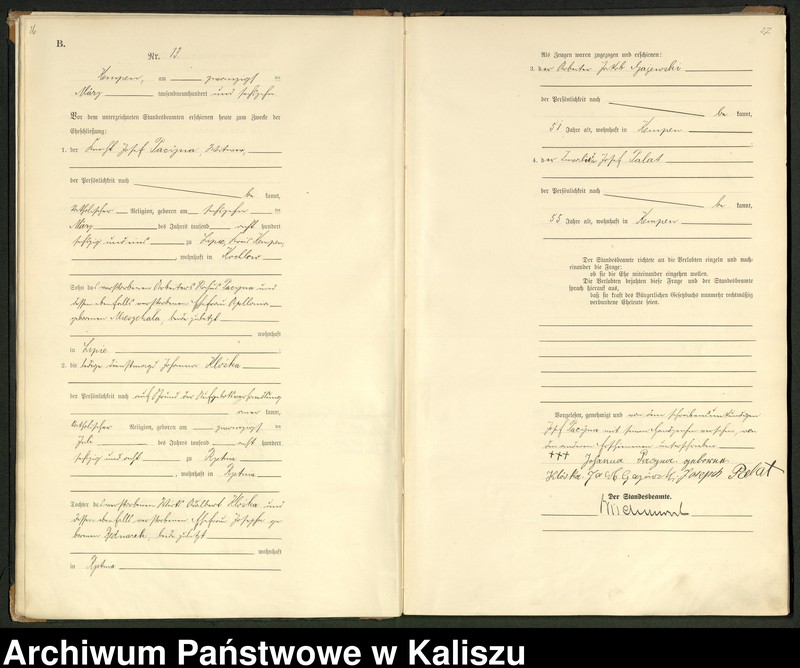 16
B.
Nr. 12
Kempen, am zwanzigsten
März tausendneunhundert und sechzehn
Vor dem unterzeichneten Standesbeamten erschienen heute zum Zwecke der
Eheschließung:
1. der Knecht Josef Pacyna, Witwer,
der Persönlichkeit nach
be kannt,
katholischer Religion, geboren am sechzehnten
März des Jahres tausend acht hundert
sechzig und eins zu Lipie, Kreis Kempen,
, wohnhaft in
Sohn des verstorbenen Arbeiters Pacyna und
dessen ebenfalls verstorbenen Ehefrau Apollonia
geborenen beide zuletzt
wohnhaft
in Lipie
2. die ledige Dienstmagd Johanna Kloska
der Persönlichkeit nach auf Grund der Aufgebotsverhandlung
aner kannt,
katholischer Religion, geboren am zwanzigsten
Juli des Jahres tausend acht hundert
sechzig und acht zu
, wohnhaft in
Tochter des verstorbenen Kloska und
dessen ebenfalls verstorbenen Ehefrau Josepha ge
borenen beide zuletzt
wohnhaft
in
27
Als Zeugen waren zugezogen und erschienen:
3. der Arbeiter
der Persönlichkeit nach
be kannt,
51 Jahre alt, wohnhaft in Kempen
4. der Josef Palat
der Persönlichkeit nach
be kannt,
55 Jahre alt, wohnhaft in Kempen
Der Standesbeamte richtete an die Verlobten einzeln und nach-
einander die Frage:
ob sie die Ehe miteinander eingehen wollen.
Die Verlobten bejahten diese Frage und der Standesbeamte
sprach hierauf aus,
daß sie kraft des Bürgerlichen Gesetzbuchs nunmehr rechtmäßig
verbundene Eheleute seien.
Vorgelesen, genehmigt und von dem schreibensunkundigen
Josef Pacyna mit seinem Handzeichen versehen, von
den anderen Erschienenen unterschrieben
+++ Johanna Pacyna geborene
Kloska
Der Standesbeamte.
Archiwum Państwowe w Kaliszu